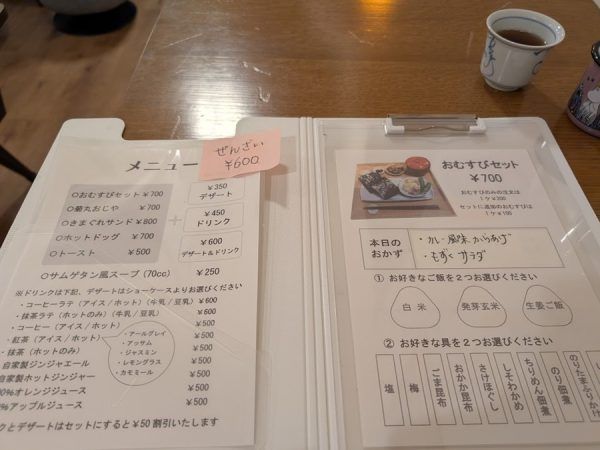 メニュー
ぜんざい
¥600
○おむすびセット ¥700
○菊丸おじや ¥700
○きまぐれサンド ¥800
○ホットドッグ ¥700
○トースト ¥500
+
¥350
デザート
¥450
ドリンク
¥600
デザート&ドリンク
○サムゲタン風スープ (70cc) ¥250
※ドリンクは下記、デザートはショーケースよりお選びください
・コーヒーラテ (アイス/ホット) (牛乳/豆乳) ¥600
・抹茶ラテ (ホットのみ) (牛乳/豆乳) ¥600
・コーヒー (アイス/ホット) ¥500
・紅茶 (アイス/ホット) ¥500
・抹茶 (ホットのみ) ¥500
・アールグレイ
・アッサム
・ジャスミン
・レモングラス
・カモミール
自家製ジンジャエール ¥500
自家製ホットジンジャー ¥500
%オレンジジュース ¥500
%アップルジュース ¥500
クとデザートはセットにすると¥50 割引いたします
おむすびセット
¥700
おむすびのみの注文は
1ケ¥200
セットに追加のおむすびは
1ケ¥150
本日の
おかず
・カレー風味からあげ
・もずくサラダ
① お好きなご飯を2つお選びください
白米
発芽玄米
生姜ご飯
② お好きな具を2つお選びください
塩
梅
ごま昆布
おかか昆布
さけほぐし
しそわかめ
ちりめん佃煮
のり佃煮
のりたまふりかけ